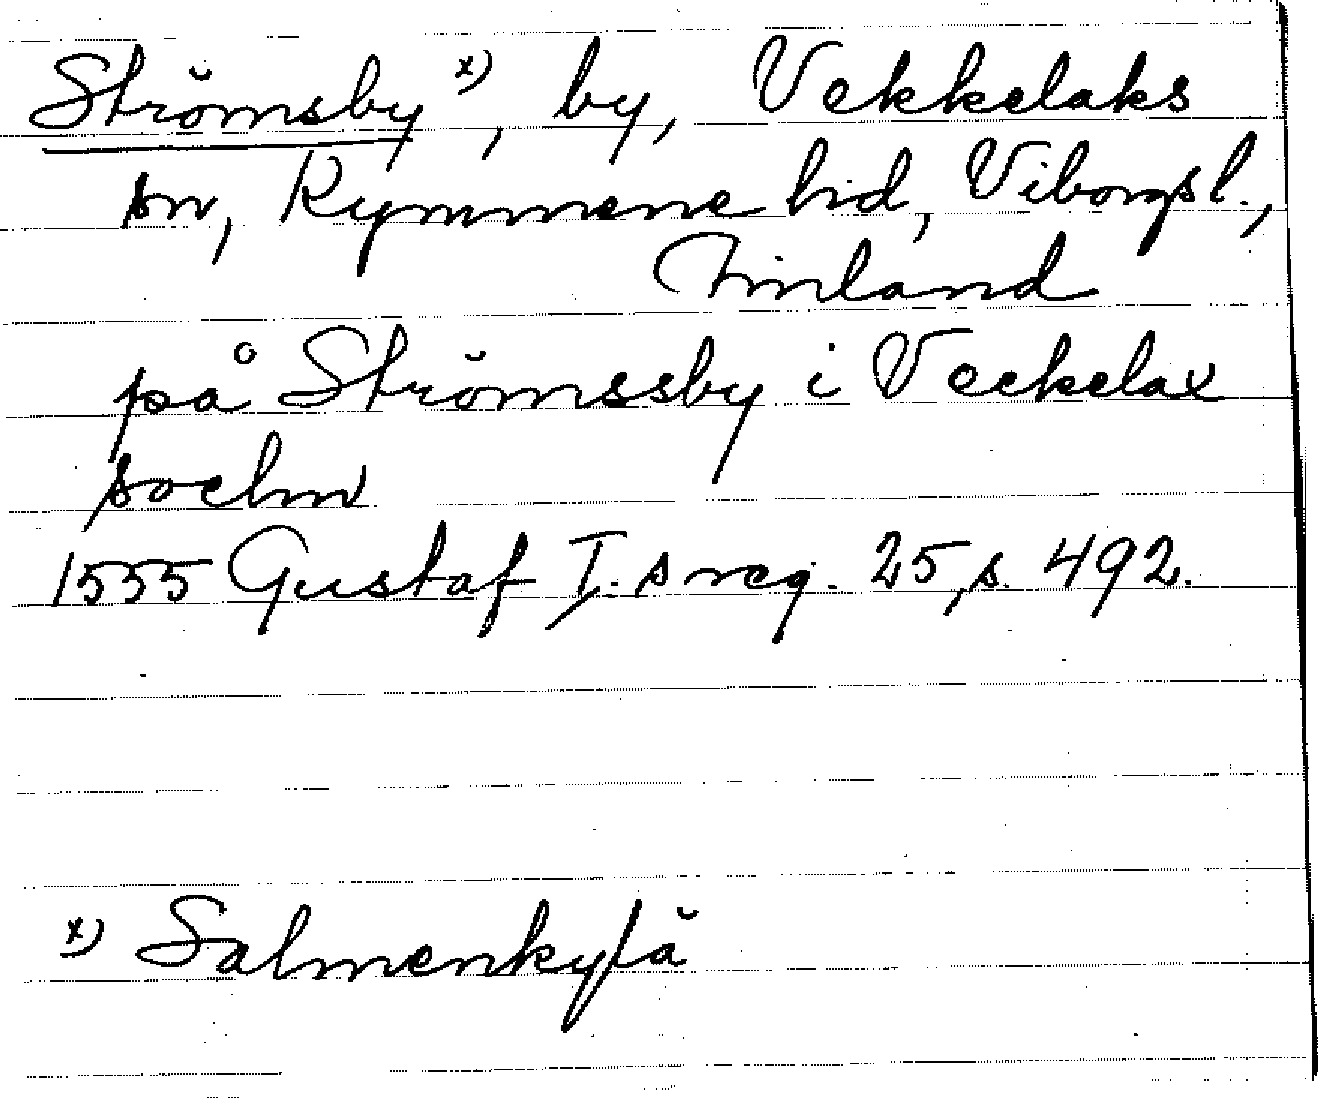 Strömsby x), by, Vekkelaks
sn, Kymmene hd, Viborgs l.,
Finland
på Strömssby i Veckelax
sochn
1555 Gustaf I. s reg. 25, s. 492.
x) Salmenkylä